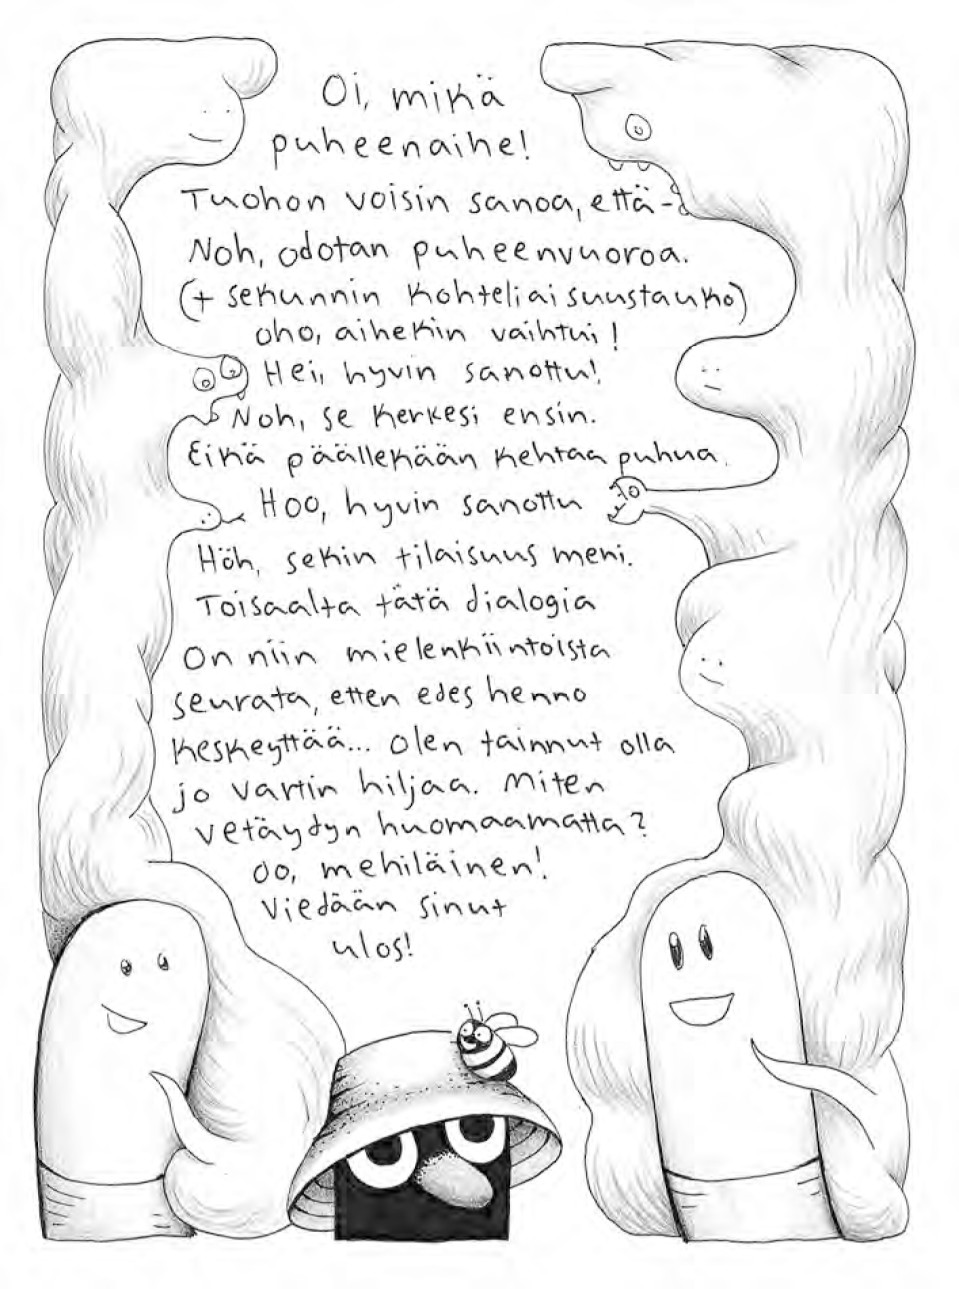 Oi, mikä
puheenaihe!
Tuohon voisin sanoa, että-
Noh, odotan puheenvuoroa.
(+ sekunnin kohteliaisuustauko)
oho, aihekin vaihtui!
Hei, hyvin sanottu!
Noh, se kerkesi ensin.
Eikä päällekään kehtaa puhua.
Hoo, hyvin sanottu
Höh, sekin tilaisuus meni.
Toisaalta tätä dialogia
On niin mielenkiintoista
seurata, etten edes henno
keskeyttää... Olen tainnut olla
jo vartin hiljaa. Miten
vetäydyn huomaamatta?
Oo, mehiläinen!
Viedään sinut
ulos!